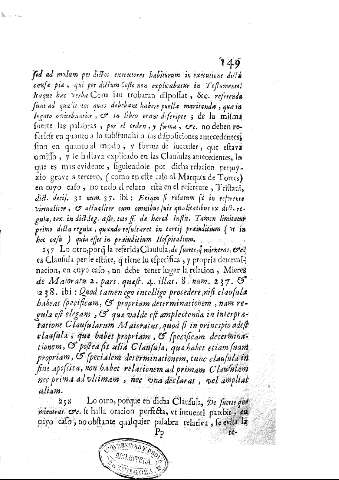 149
sed ad modum per dictos executores habitarum in executione dictæ
causæ piæ, qui per dictum testo non explicabatur in Testamento:
Itaque hæc verba Cona sin trobaran disposat, &c. referenda
sunt ad quæ les quas debebant habere puellæ maritanda, qua in
legato continebantur, & in libro erant descriptæ; de la misma
suerte las palabras, por el orden, y forma, &c. no deben re-
ferirse en quanto à la substancia à las disposiciones antecedentes,
sino en quanto al modo, y forma de suceder, que estava
omisso, y se hallava explicado en las Clausulas antecedentes, lo
que es mas evidente, siguiendole por dicha relacion perjuy-
zio grave a tercero, (como en este caso al Marquès de Torres)
en cuyo caso, no todo el relato està en el referente, Tristan,
dict. decis. 31 num. 37. ibi: Etenim si relatum sit in referente
virtualiter, & actualiter cum omnibus suis qualitatibus ex dict. re-
gula, tex. in dict. leg. asse, toto ff. de hered. instit. Tamen limitatur
primo dicta regula, quando resultaret in tertij præiudicium (ut in
hoc casu) quia esset in præiudicium Hospitalium.
257 Lo otro, porq̃ la referida Clausula, de suerte q̃ mientras, &c.
es Clausula per se estãte, q̃ tiene su especifica, y propria determi-
nacion, en cuyo caso, no debe tener lugar la relacion, Mieres
de Maioratu 2. part. quæst. 4. illat. 8. num. 237. &
238. ibi: Quod tamen ego intelligo procedere, nisi clausula
habeat specificam, & propriam determinationem, nam re-
gula est elegans, & quæ valde est amplectenda in interpre-
tatione Clausularum Maioratus, quod si in principio adest
clausula, quæ habet propriam, & specificam determina-
tionem, & postea sit alia Clausula, quæ habet etiam suam
propriam, & specialem determinationem, tunc clausula in
fine apposita, non habet relationem ad primam Clausulam
nec prima ad ultimam, nec una declarat, vel ampliat
aliam.
258 Lo otro, porque en dicha Clausula, De suerte que
mientras &c. se halla oracion perfecta, ut intuenti patebit, en
cuyo caso, no obstante qualquier palabra relativa, se evita la
Pp re-